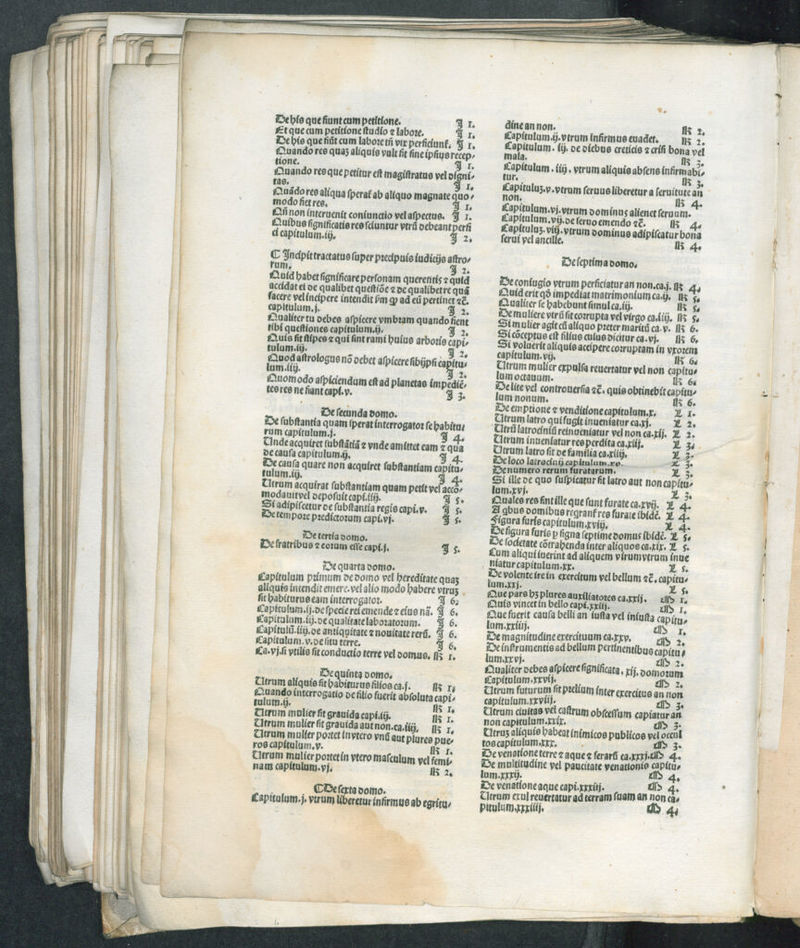 De his que fiunt cum petitione. I 1.
Et que cum petitione studio ⁊ labore. I 1.
De his que fiūt cum labore tñ vix perficiunt̃. I 1.
Quando res quaʒ aliquis vult sit sine ipsius recep-
tione. I 1.
Quando res que petitur est magistratus vel digni-
tas. I 1.
Quādo res aliqua sperat̃ ab aliquo magnate quo-
modo fiet res. I 1.
Qñ non interuenit coniunctio vel aspectus. I 1.
Quibus significatis res sciuntur vtrū debeant perfi
ci capitulum.iij. I 2.
¶ Incipit tractatus super precipuis iudicijs astro-
rum. I 2.
Quid habet significare personam querentis ⁊ quid
accidat ei de qualibet questiōe ⁊ de qualibet re quā
facere vel incipere intendit ẜm ꝙ ad eū pertinet ⁊c̄.
capitulum.j. I 2.
Qualiter tu debes aspicere vmbram quando fient
tibi questiones capitulum.ij. I 2.
Quis sit stipes ⁊ qui sint rami huius arboris capi-
tulum.iij. I 2.
Quod astrologus nō debet aspicere sibijpsi capitu-
lum.iiij. I 2.
Quomodo aspiciendum est ad planetas impediē-
tes res ne fiant capi.v. I 3.
De secunda domo.
De substantia quam sperat interrogator se habitu-
rum capitulum.j. I 4.
Unde acquiret substātiā ⁊ vnde amittet eam ⁊ qua
de causa capitulum.ij. I 4.
De causa quare non acquiret substantiam capitu-
tulum.iij. I 4.
Utrum acquirat substantiam quam petit vel acco-
modauit vel deposuit capi.iiij. I 5.
Si adipiscetur de substantia regis capi.v. I 5.
De tempore predictorum capi.vj. I 5.
De tertia domo.
De fratribus ⁊ eorum esse capi.j. I 5.
De quarta domo.
Capitulum primum de domo vel hereditate quaʒ
aliquis intendit emere.vel alio modo habere vtruʒ
sit habiturus eam interrogator. I 6.
Capitulum.ij.de specie rei emende ⁊ eius nā. I 6.
Capitulum.iij.de qualitate laboratorum. I 6.
Capitulū.iiij.de antiqŋitate ⁊ nouitate rerū. I 6.
Capitulum.v.de situ terre. I 6.
Ca.vj.si vtilis sit conductio terre vel domus. K 1.
De quinta domo.
Utrum aliquis sit habiturus filios ca.j. K 1.
Quando interrogatio de filio fuerit absoluta capi-
tulum.ij. K 1.
Utrum mulier sit grauida capi.iij. K 1.
Utrum mulier sit grauida aut non.ca.iiij. K 1.
Utrum mulier portet in vtero vnū aut plures pue-
ros capitulum.v. K 1.
Utrum mulier portet in vtero masculum vel femi-
nam capitulum.vj. K 2.
¶ De sexta domo.
Capitulum.j. vtrum liberetur infirmus ab egritu-
dine an non. K 2.
Capitulum.ij.vtrum infirmus euadet. K 2.
Capitulum. iij. de diebus creticis ⁊ crisi bona vel
mala. K 3.
Capitulum .iiij. vtrum aliquis absens infirmabi-
tur. K 3.
Capituluʒ.v.vtrum seruus liberetur a seruitute an
non. K 4.
Capitulum.vj.vtrum dominus alienet seruum.
Capitulum.vij.de seruo emendo ⁊c̄. K 4.
Capituluʒ.viij.vtrum dominus adipiscatur bona
serui vel ancille. K 4.
De septima domo.
De coniugio vtrum perficiatur an non.ca.j. K 4.
Quid erit qđ impediat matrimonium ca.ij. K 5.
Qualiter se habebunt simul ca.iij. K 5.
De muliere vtrū sit corrupta vel virgo ca.iiij. K 5.
Si mulier agit cū aliquo preter maritū ca.v. K 6.
Si cōceptus est filius cuius dicitur ca.vj. K 6.
Si voluerit aliquis accipere corruptam in vxorem
capitulum.vij. K 6.
Utrum mulier expulsa reuertatur vel non capitu-
lum octauum. K 6.
De lite vel controuersia ⁊c̄. quis obtinebit capitu-
lum nonum. K 6.
De emptione ⁊ venditione capitulum.x. L 1.
Utrum latro qui fugit inueniatur ca.xj. L 2.
Utrū latrociniū reinueniatur vel non ca.xij. L 2.
Utrum inueniatur res perdita ca.xiij. L 3.
Utrum latro sit de familia ca.xiiij. L 3.
De loco latrocinij capitulum.xv. L 3.
De numero rerum furatarum. L 3.
Si ille de quo suspicatur sit latro aut non capitu-
lum.xvj. L 3.
Quales res sint ille que sunt furate ca.xvij. L 4.
A qbus domibus regrant̃ res furate ibidē. L 4.
Figura furis capitulum.xviij. L 4.
De figura furis ꝑ signa septime domus ibidē. L 5.
De societate cōtrahenda inter aliquos ca.xix. L 5.
Cum aliqui iuerint ad aliquem virum vtrum inue
niatur capitulum.xx. L 5.
De volente ire in exercitum vel bellum ⁊c̄. capitu-
lum.xxj. L 5.
Que pars hʒ plures auxiliatores ca.xxij. M 1.
Quis vincet in bello capi.xxiij. M 1.
Que fuerit causa belli an iusta vel iniusta capitu-
lum.xxiiij. M 1.
De magnitudine exercituum ca.xxv. M 2.
De instrumentis ad bellum pertinentibus capitu-
lum.xxvj. M 2.
Qualiter debes aspicere significata. xij. domorum
Capitulum.xxvij. M 2.
Utrum futurum sit prelium inter exercitus an non
capitulum.xxviij. M 3.
Utrum ciuitas vel castrum obsessum capiatur an
non capitulum.xxix. M 3.
Utruʒ aliquis habeat inimicos publicos vel occul
tos capitulum.xxx. M 3.
De venatione terre ⁊ aque ⁊ ferarū ca.xxxj. M 4.
De multitudine vel paucitate venationis capitu-
lum.xxxij. M 4.
De venatione aque capi.xxxiij. M 4.
Utrum exul reuertatur ad terram suam an non ca-
pitulum.xxxiiij. M 4.